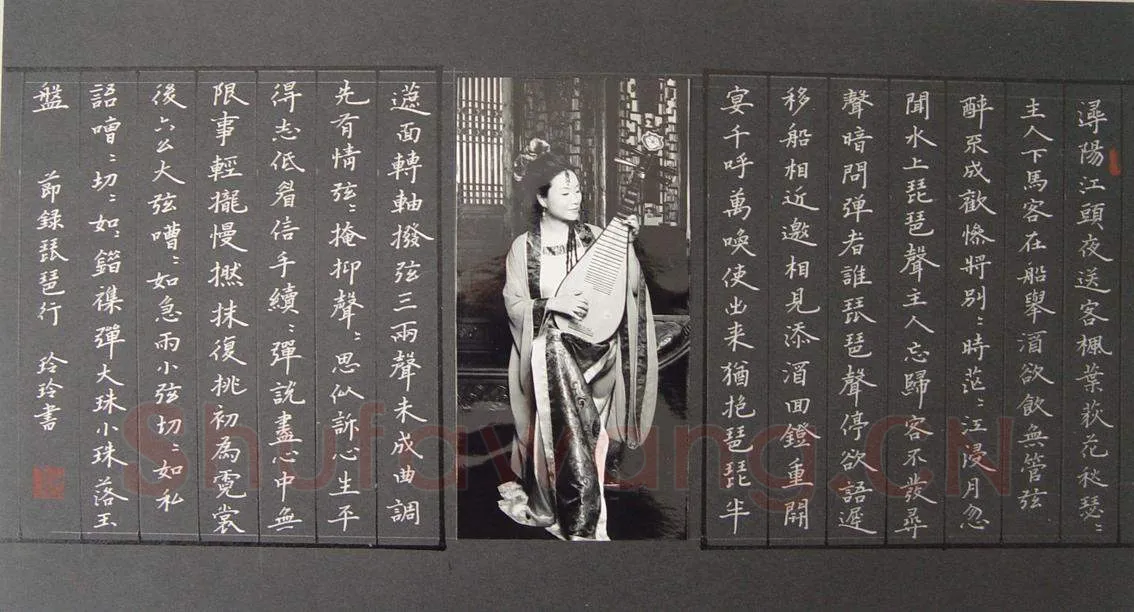 潯陽江頭夜送客楓葉荻花秋瑟〻
主人下馬客在船舉酒欲飲無管弦
醉不成歡慘將別〻時茫〻江浸月忽
聞水上琵琶聲主人忘歸客不發尋
聲暗問弹者誰琵琶聲停欲語遲
移船相近邀相見添酒回鐙重開
宴千呼萬喚使出来猶抱琵琶半
遮面轉軸撥弦三兩聲未成曲調
先有情弦〻掩抑聲〻思似訴心生平
得志低眉信手續〻彈説盡心中無
限事輕攏慢撚抹復挑初為霓裳
後六么大弦嘈〻如急雨小弦切〻如私
語嘈〻切〻如錯襍彈大珠小珠落玉
盤
節録琵琶行 玲玲書
Shufawang.CN